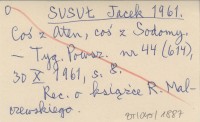 SUSUŁ Jacek 1961.
Coś z Aten, coś z Sodomy.
– Tyg. Powsz. nr 44 (614),
30 X 1961, s. 8.
Rec. o książce R. Mal-
czewskiego.